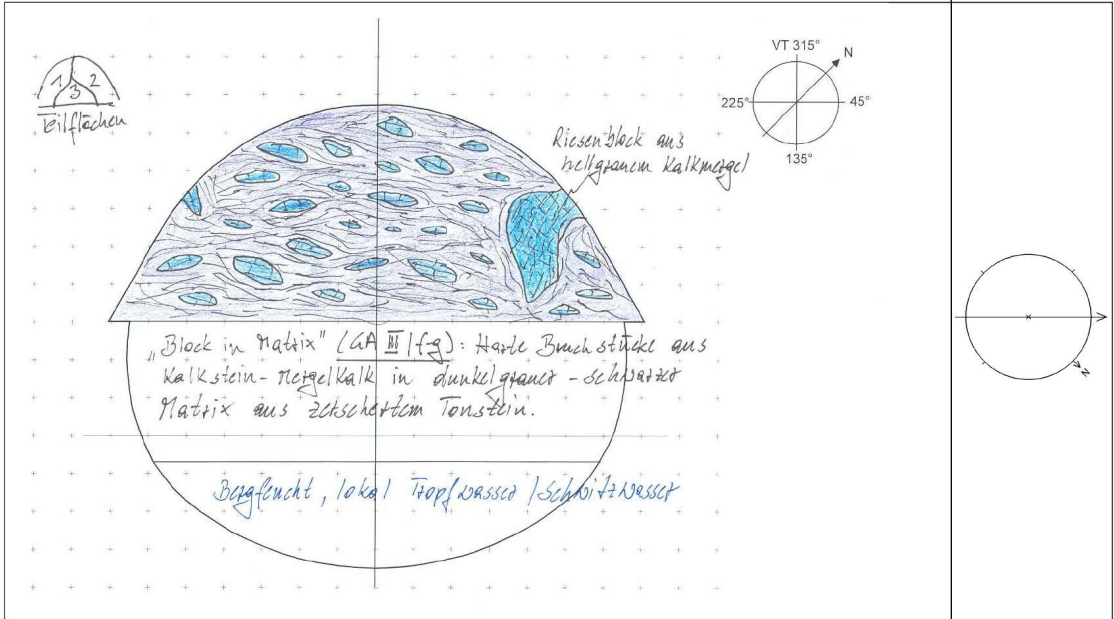 1 2
3
Teilflächen
VT 315°
N
225°
45°
135°
Riesenblock aus
hellgrauem Kalkmergel
„Block in Matrix" (GA III/f-g): Harte Bruchstücke aus
Kalkstein-Mergelkalk in dunkelgrauer - schwarzer
Matrix aus zerschertem Tonstein.
Bergfeucht, lokal Tropfwasser / Schwitzwasser
N